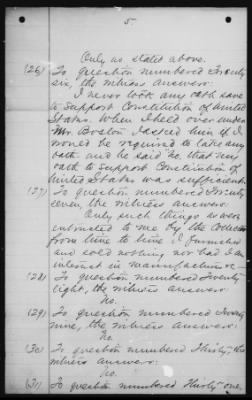 5.
Only as stated above.
(26) To question numbered Twenty
six, the witness answers:
I never took any oath save
to support Constitution of United
States. When I held over under
Mr. Boston I asked him if I
would be required to take any
oath and he said no, that my
oath to support Constitution of
United States was sufficient.
(27) To question numbered Twenty
seven, the witness answers:
Only such things as were
entrusted to me by the Collector
from time to time. I furnished
and sold nothing nor had I an
interest in
(28) To question numbered Twenty
eight, the witness answers:
No.
(29) To question numbered Twenty
nine, the witness answers:
No.
(30) To question numbered Thirty, the
witness answers:
No.
(31) To question numbered Thirty one,